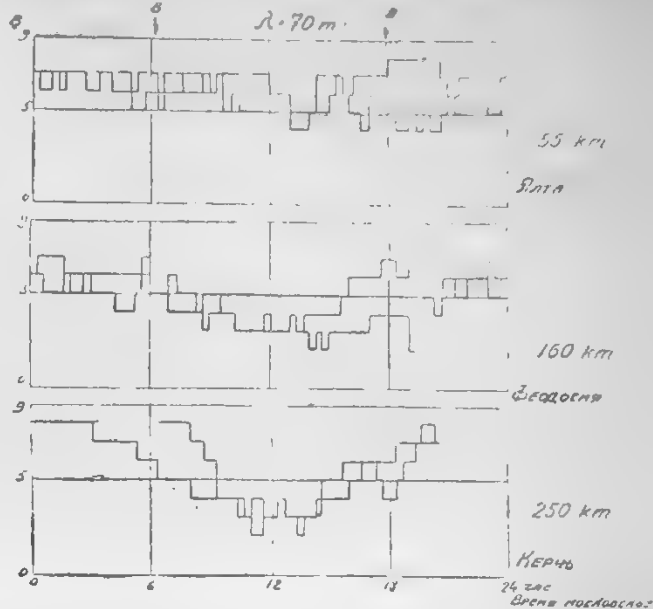 λ=70 m.
9
5
0
55 km
Ялта
5
0
160 km
Феодосия
9
5
0
250 km
Керчь
0 6 12 18 24 час
Время московское